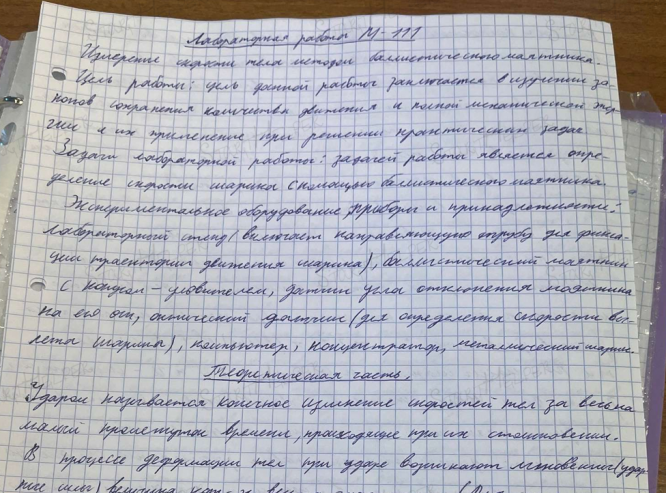 Лабораторная работа М-111
Измерение скорости тела методом баллистического маятника.
Цель работы: цель данной работы заключается в изучении за-
конов сохранения количества движения и полной механической энер-
гии и их применение при решении практических задач
Задачи лабораторной работы: задачей работы является опре-
деление скорости шарика с помощью баллистического маятника.
Экспериментальное оборудование, приборы и принадлежности:
Лабораторный стенд (включает направляющую трубу для фикса-
ции траектории движения шарика), баллистический маятник
с надком - уловителем, датчик угла отклонения маятника
на его оси, оптический датчик (для определения скорости вы-
лета шарика), компьютер, концентратор, металлический шарик.
Теоретическая часть.
Ударом называется конечное изменение скоростей тел за весьма
малый промежуток времени, происходящие при их столкновении.
В процессе деформации тел при ударе возникают мгновенные (удар
ные силы) величина